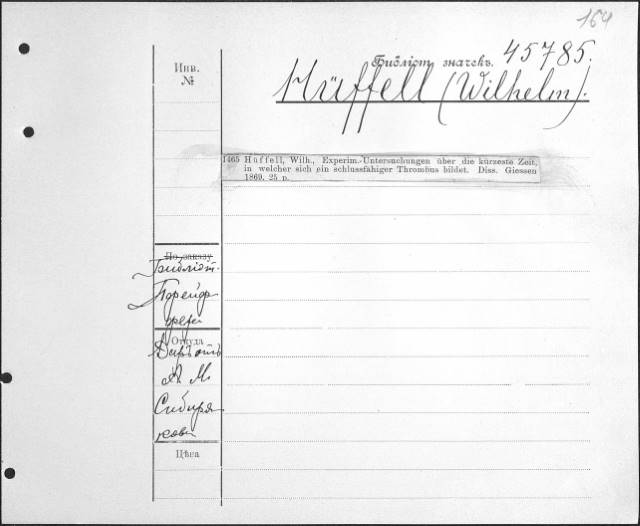 164
Инв.
№
Библіот. значекъ.
45785.
Hüffell (Wilhelm).
1465 Hüffell, Wilh., Experim.-Untersuchungen über die kürzeste Zeit,
in welcher sich ein schlussfähiger Thrombus bildet. Diss. Giessen
1869. 25 p.
По заказу
Библіот.
Порейдр
фера
Откуда
Даръ отъ
А. М.
Сибиря
кова
Цѣна